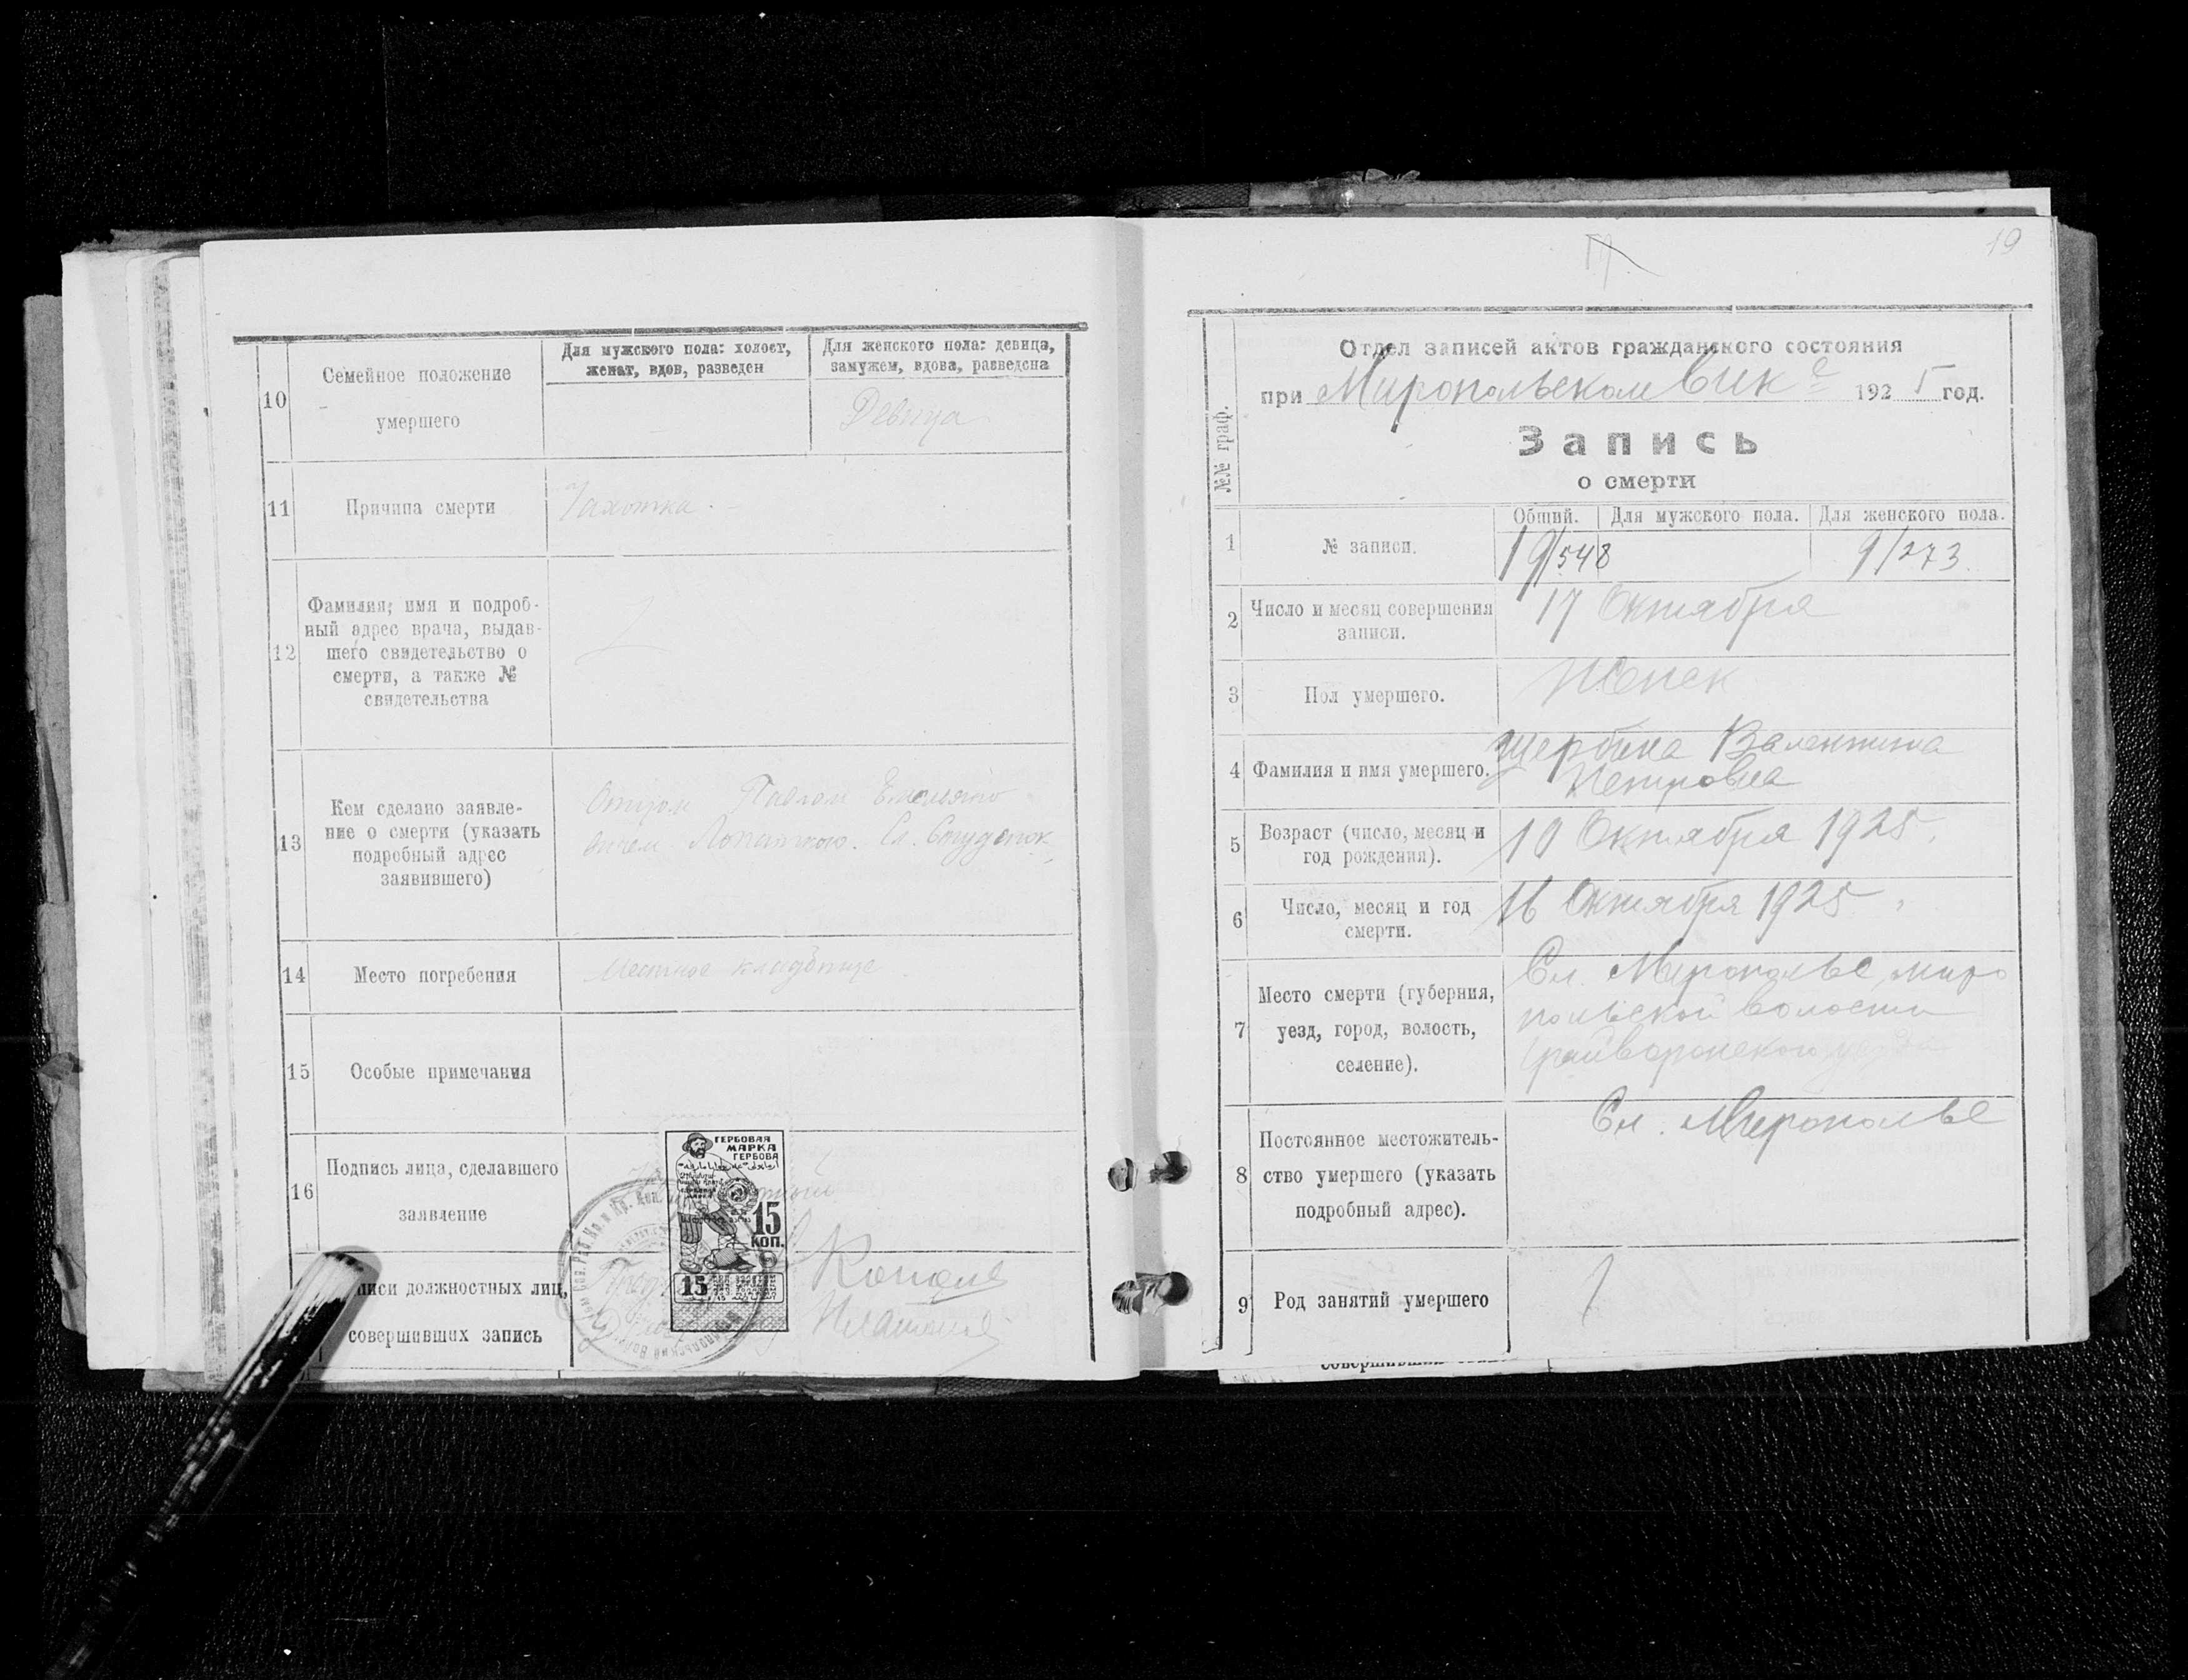 10
Семейное положение
умершего
Для мужского пола: холост,
женат, вдов, разведен
Для женского пола: девица,
замужем, вдова, разведена
Девица
11
Причина смерти
Чахотка.
12
Фамилия, имя и подроб-
ный адрес врача, выдав-
шего свидетельство о
смерти, а также №
свидетельства
13
Кем сделано заявле-
ние о смерти (указать
подробный адрес
заявившего)
Отцом Павлом Емельяно
вичем Лопаткою. Сл. Студенок
14
Место погребения
Местное кладбище
15
Особые примечания
16
Подпись лица, сделавшего
заявление
ГЕРБОВАЯ
МАРКА
ГЕРБОВА
15
КОП.
15
писи должностных лиц,
совершивших запись
19
№№ граф.
Отдел записей актов гражданского состояния
при Миропольском Вике 1925 год.
Запись
о смерти
Общий. Для мужского пола. Для женского пола.
1
№ записи.
19/548
9/273
2
Число и месяц совершения
записи.
17 Октября
3
Пол умершего.
Женск
4
Фамилия и имя умершего.
Щербина Валентина
Петровна
5
Возраст (число, месяц и
год рождения).
10 Октября 1925.
6
Число, месяц и год
смерти.
16 Октября 1925
7
Место смерти (губерния,
уезд, город, волость,
селение).
Сл. Мирополье, миро
польской волости
Грайворонского уезда
8
Постоянное местожитель-
ство умершего (указать
подробный адрес).
Сл. Мирополье
9
Род занятий умершего